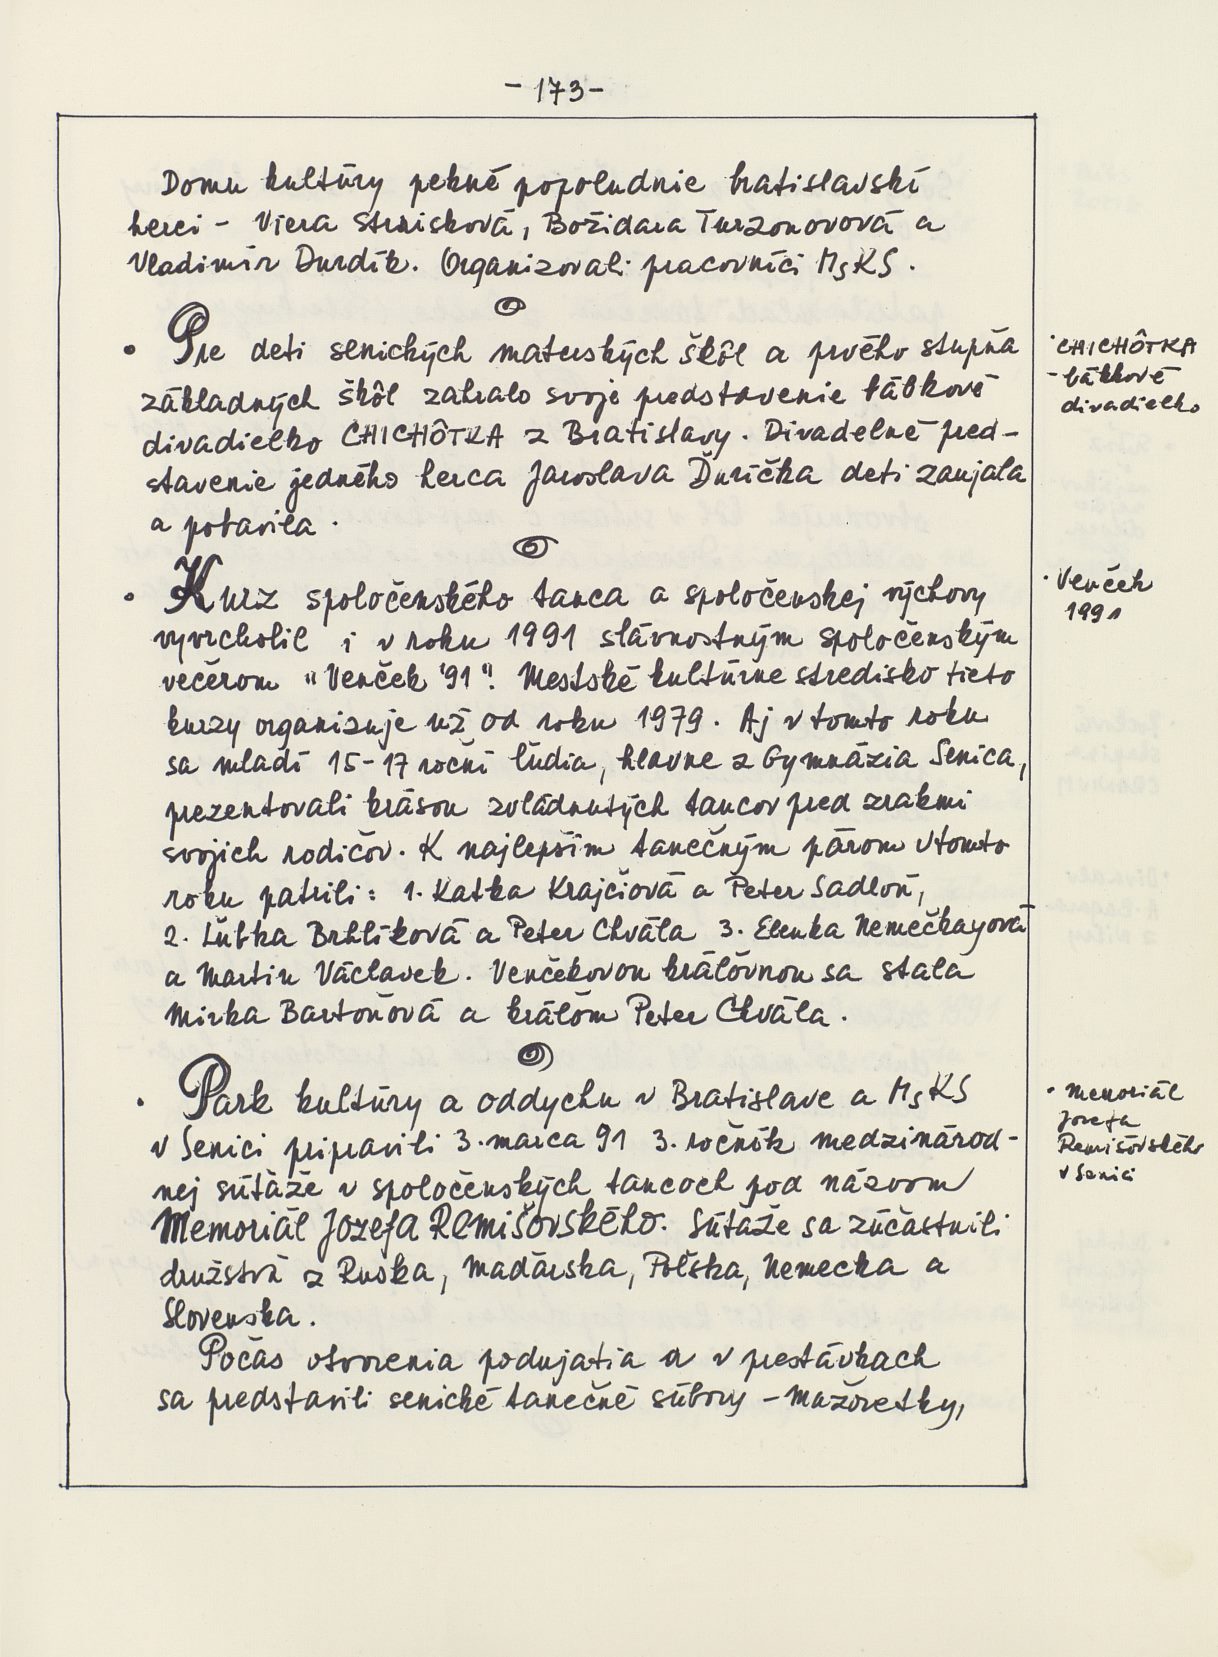 - 173 -
Domu kultúry pekné popoludnie bratislavskí
herci - Viera Strnisková, Božidara Turzonovová a
Vladimír Durdík. Organizovali pracovníci MsKS.
• Pre deti senických materských škôl a prvého stupňa
základných škôl zahralo svoje predstavenie bábkové
divadielko CHICHÔTKA z Bratislavy. Divadelné pred-
stavenie jedného herca Jaroslava Ďuríčka deti zaujala
a pobavila.
• CHICHÔTKA
- bábkové
divadielko
• Kurz spoločenského tanca a spoločenskej výchovy
vyvrcholil i v roku 1991 slávnostným spoločenským
večerom "Venček '91". Mestské kultúrne stredisko tieto
kurzy organizuje už od roku 1979. Aj v tomto roku
sa mladí 15-17 roční ľudia, hlavne z Gymnázia Senica,
prezentovali krásou zvládnutých tancov pred zrakmi
svojich rodičov. K najlepším tanečným párom v tomto
roku patrili: 1. Katka Krajčiová a Peter Sadloň,
2. Ľubka Brhlíková a Peter Chvála 3. Elenka Nemečkayová
a Martin Václavek. Venčekovou kráľovnou sa stala
Mirka Bartoňová a kráľom Peter Chvála.
• Venček
1991
• Park kultúry a oddychu v Bratislave a MsKS
v Senici pripravili 3. marca 91 3. ročník medzinárod-
nej súťaže v spoločenských tancoch pod názvom
Memoriál Jozefa Remišovského. Súťaže sa zúčastnili
družstvá z Ruska, Maďarska, Poľska, Nemecka a
Slovenska.
Počas otvorenia podujatia a v prestávkach
sa predstavili senické tanečné súbory - Mažoretky,
• Memoriál
Jozefa
Remišovského
v Senici